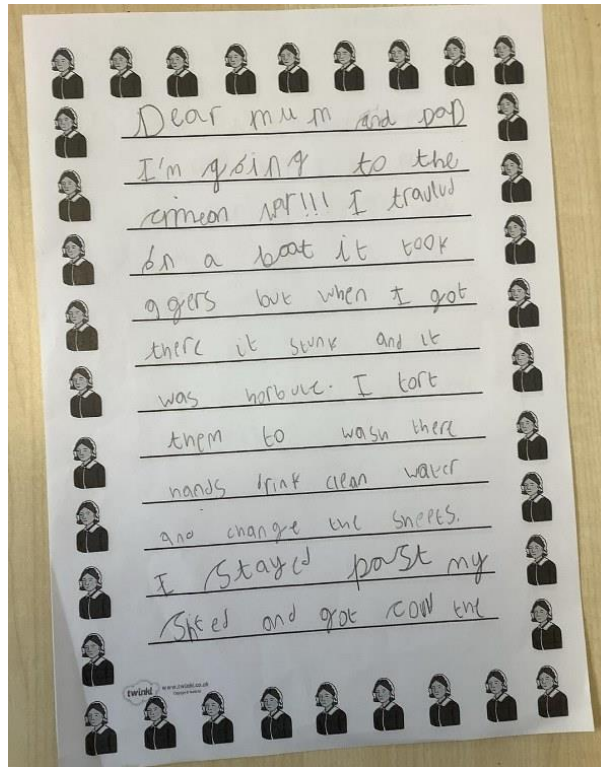 Dear mum and DaD
I'm going to the
crimean war!!! I travlud
on a boat it took
aggers but when I got
there it stunk and it
was horbule. I tort
them to wash there
hands drink clean water
and change the sheets.
I stayed past my
and got coul the
twinkl www.twinkl.co.uk